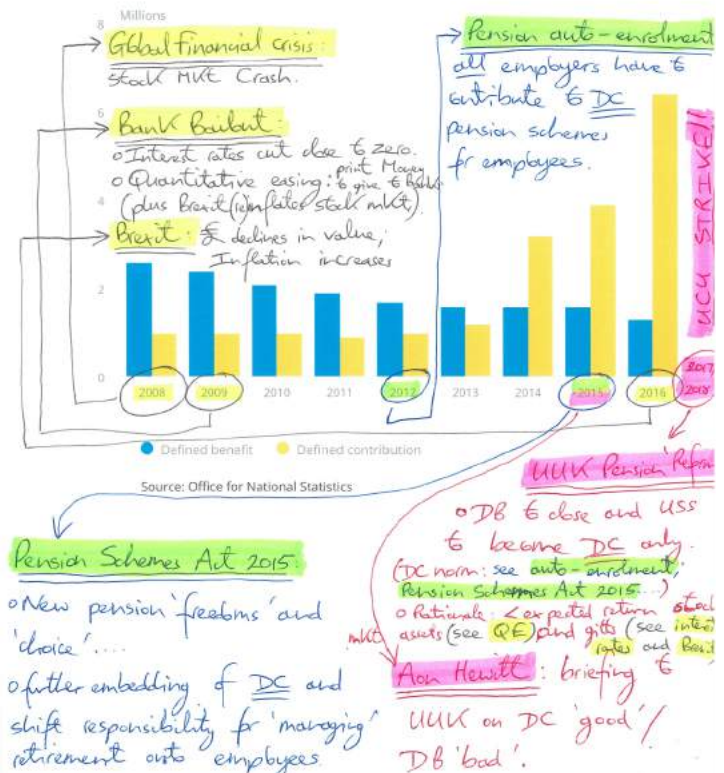 8 Millions
Global Financial crisis:
Stock Mkt Crash.
6
Bank Bailout:
o Interest rates cut close to zero.
o Quantitative easing: print Money
to give to Banks
(plus Brexit (re)inflates stock mkt).
4
Brexit: £ declines in value;
Inflation increases
2
0
Pension auto-enrolment
all employers have to
contribute to DC
pension schemes
for employees.
UCU STRIKE!!
2008 2009 2010 2011 2012 2013 2014 2015 2016
2017
2018
Defined benefit Defined contribution
Source: Office for National Statistics
Pension Schemes Act 2015:
o New pension 'freedoms' and
'choice'....
o further embedding of DC and
shift responsibility for 'managing'
retirement onto employees
UUK Pension Reform
o DB to close and USS
to become DC only.
(DC norm: see auto-enrolment;
Pension Schemes Act 2015...)
o Rationale: < expected return stock
mkt assets (see QE) and gilts (see interest
rates and Brexit
Aon Hewitt: briefing to
UUK on DC 'good' /
DB 'bad'.